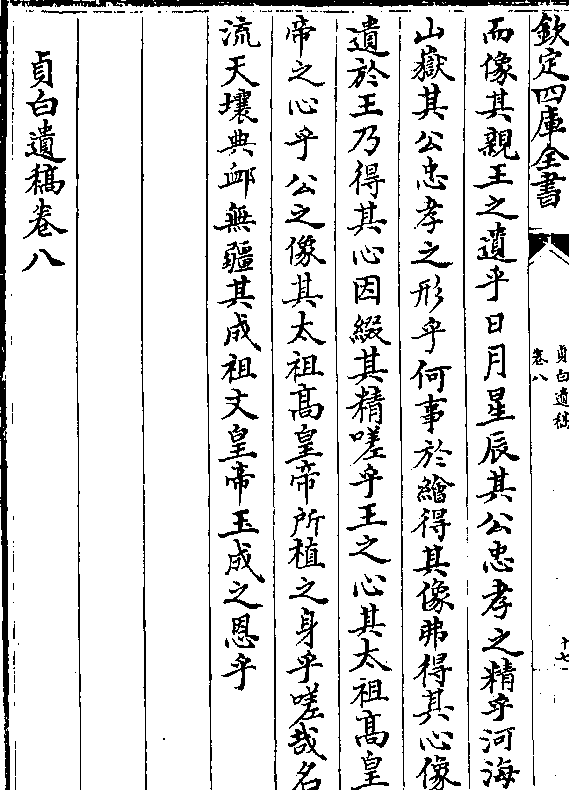 欽定四庫全書
貞白遺稿
卷八
十七
而像其親王之遺乎日月星辰其公忠孝之精乎河海
山嶽其公忠孝之形乎何事於繪得其像弗得其心像
遺於王乃得其心因綴其精嗟乎王之心其太祖髙皇
帝之心乎公之像其太祖髙皇帝所植之身乎嗟哉名
流天壤典䘏無疆其成祖文皇帝玉成之恩乎
貞白遺稿卷八